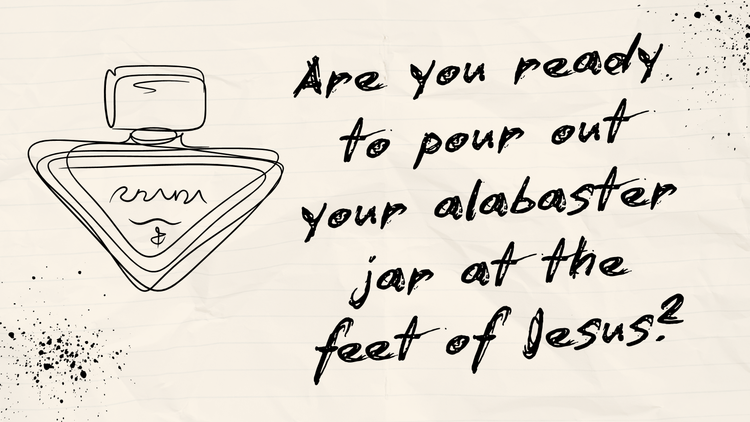 Are you ready
to pour out
your alabaster
jar at the
feet of Jesus?